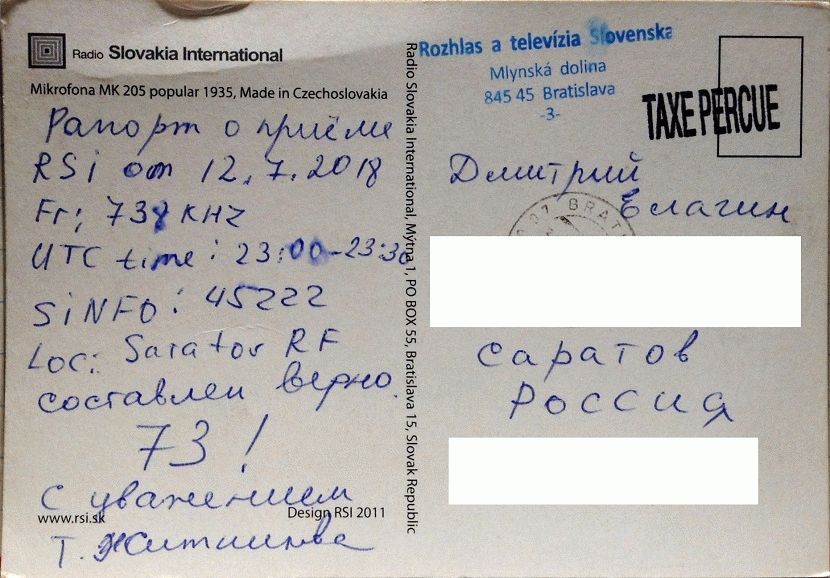 Radio Slovakia International
Mikrofona MK 205 popular 1935, Made in Czechoslovakia
Рапорт о приёме
RSI от 12.7.2018
Fr: 738 KHZ
UTC time: 23:00-23:30
SINFO: 45222
Loc: Saratov RF
составлен верно.
73!
С уважением
www.rsi.sk
Design RSI 2011
Т.
Radio Slovakia International, Mýtna 1, PO BOX 55, Bratislava 15, Slovak Republic
Rozhlas a televízia Slovenska
Mlynská dolina
845 45 Bratislava
-3-
TAXE PERCUE
Дмитрий
Елагин
BRATI
Саратов
Россия